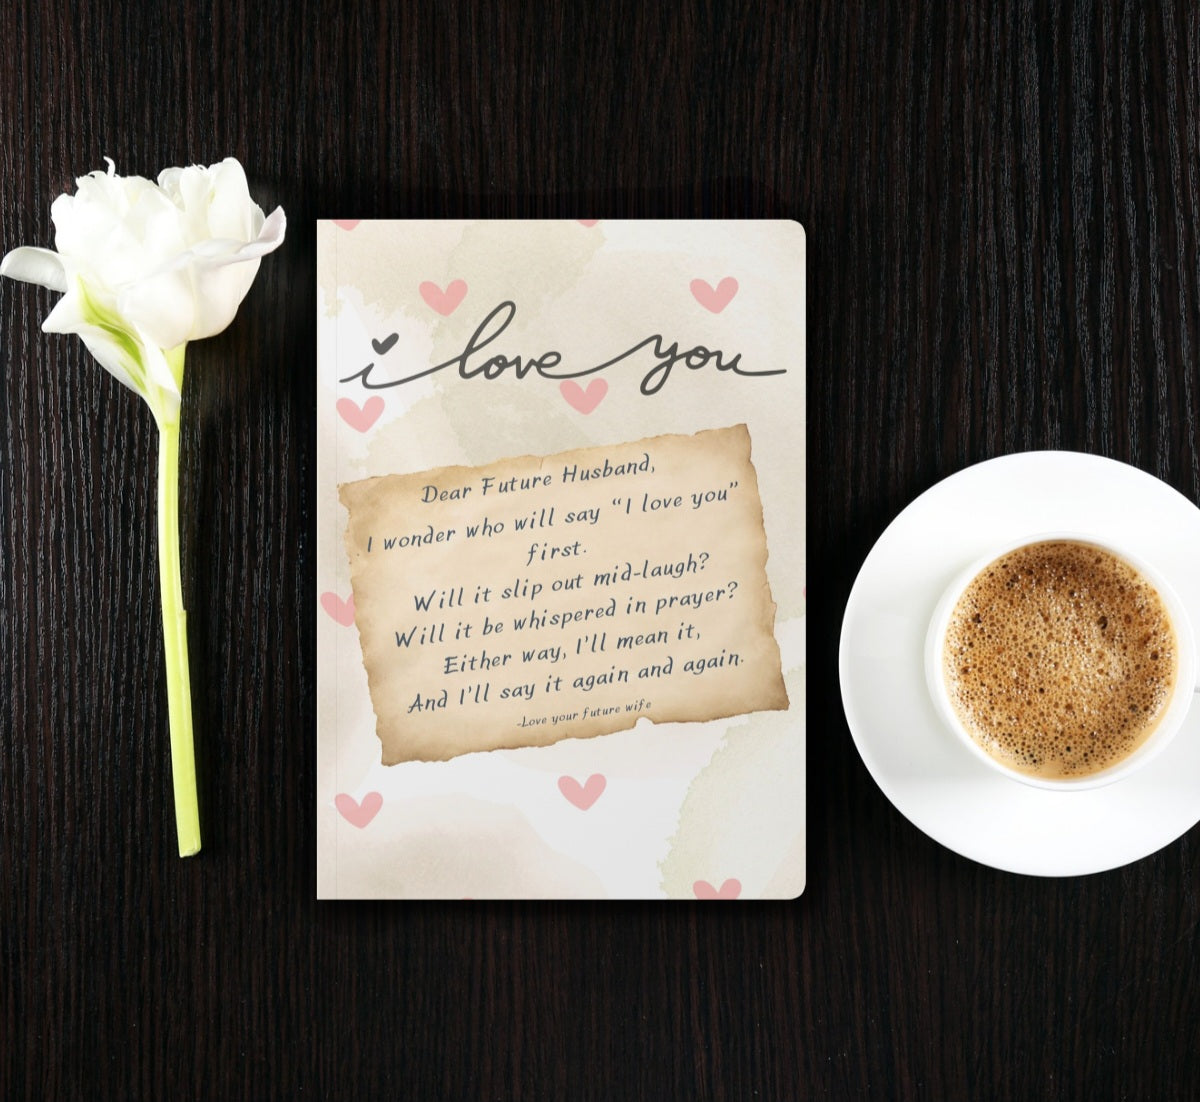 i love you
Dear Future Husband,
I wonder who will say “I love you”
first.
Will it slip out mid-laugh?
Will it be whispered in prayer?
Either way, I'll mean it,
And I'll say it again and again.
-Love your future wife